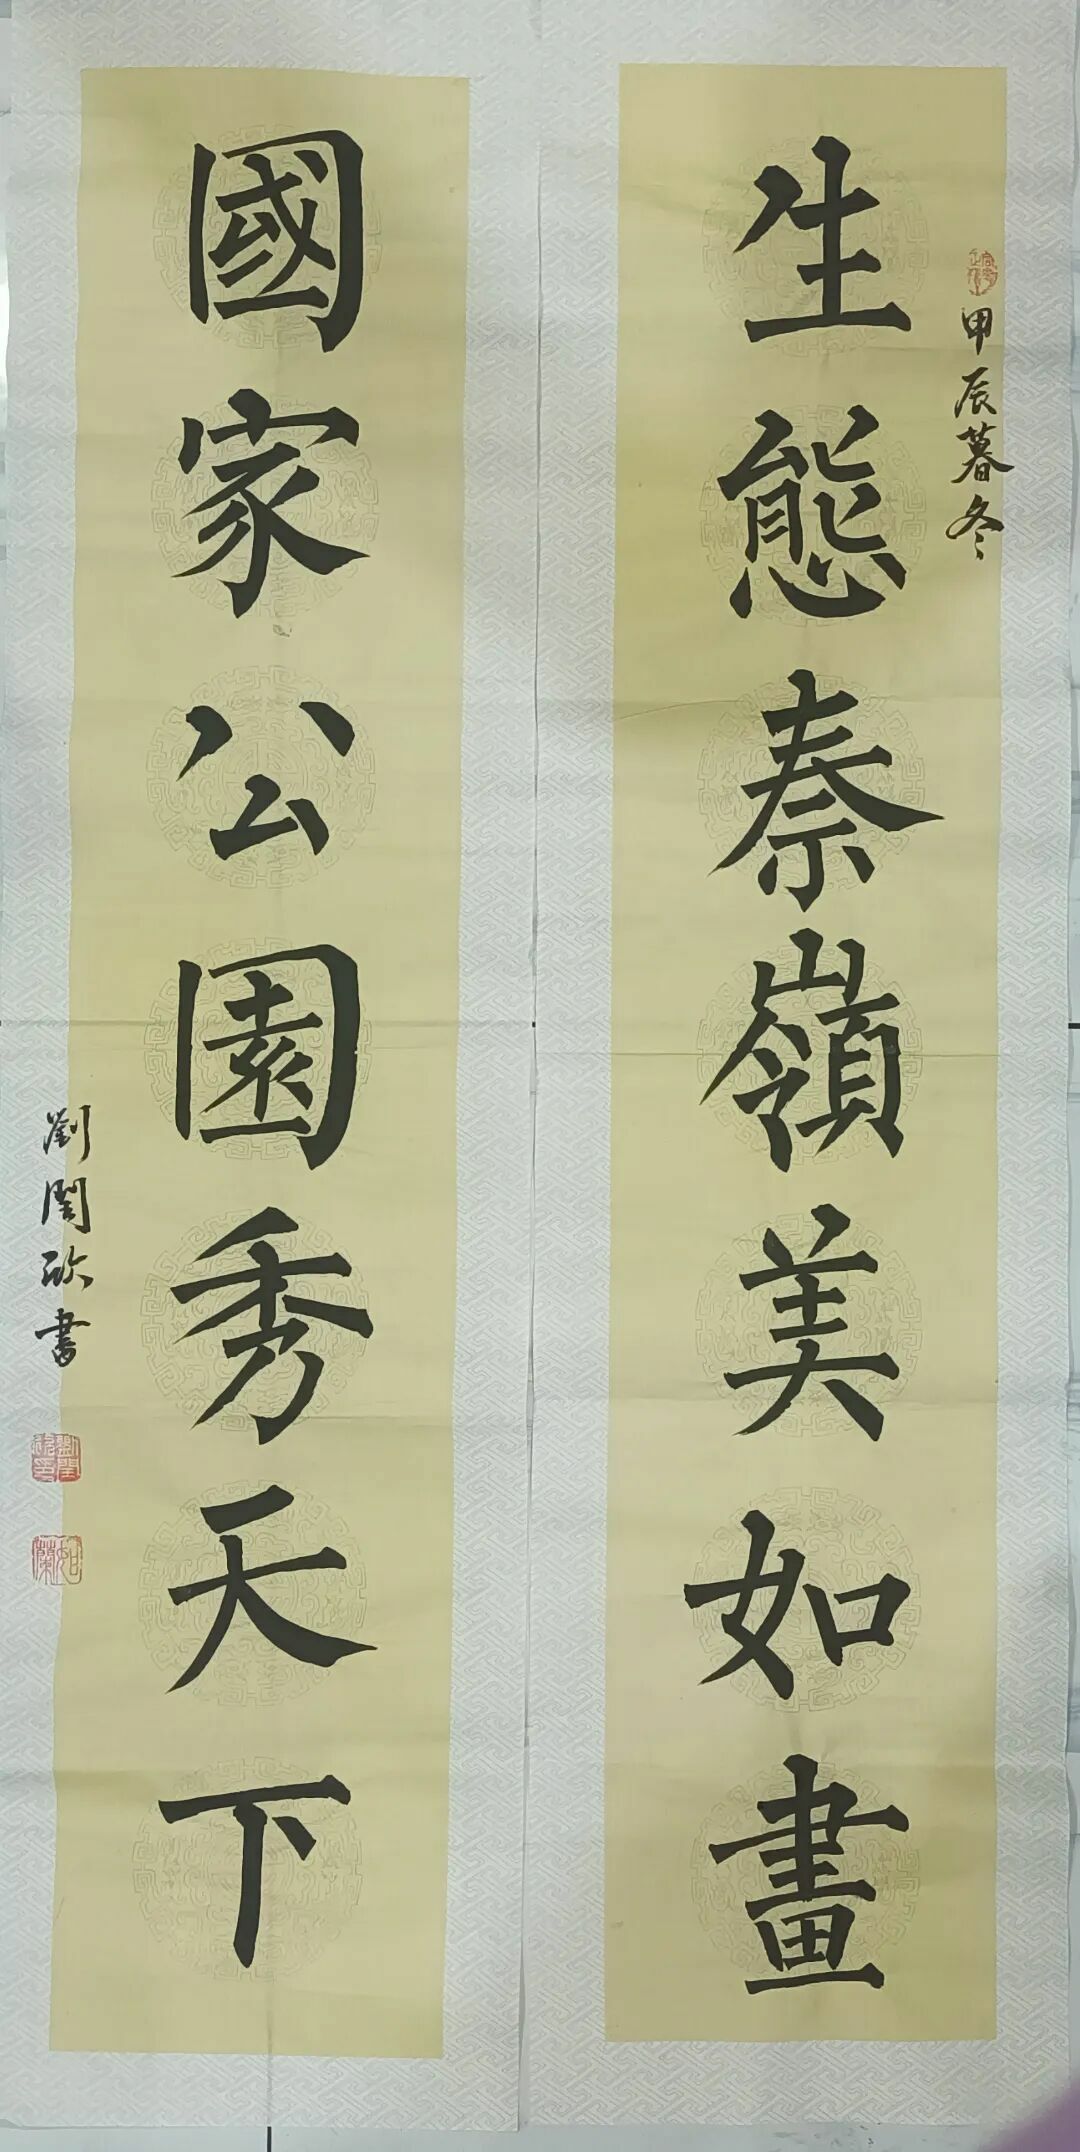 生態秦嶺美如畫
甲辰暮冬
國家公園秀天下
劉閏欣書